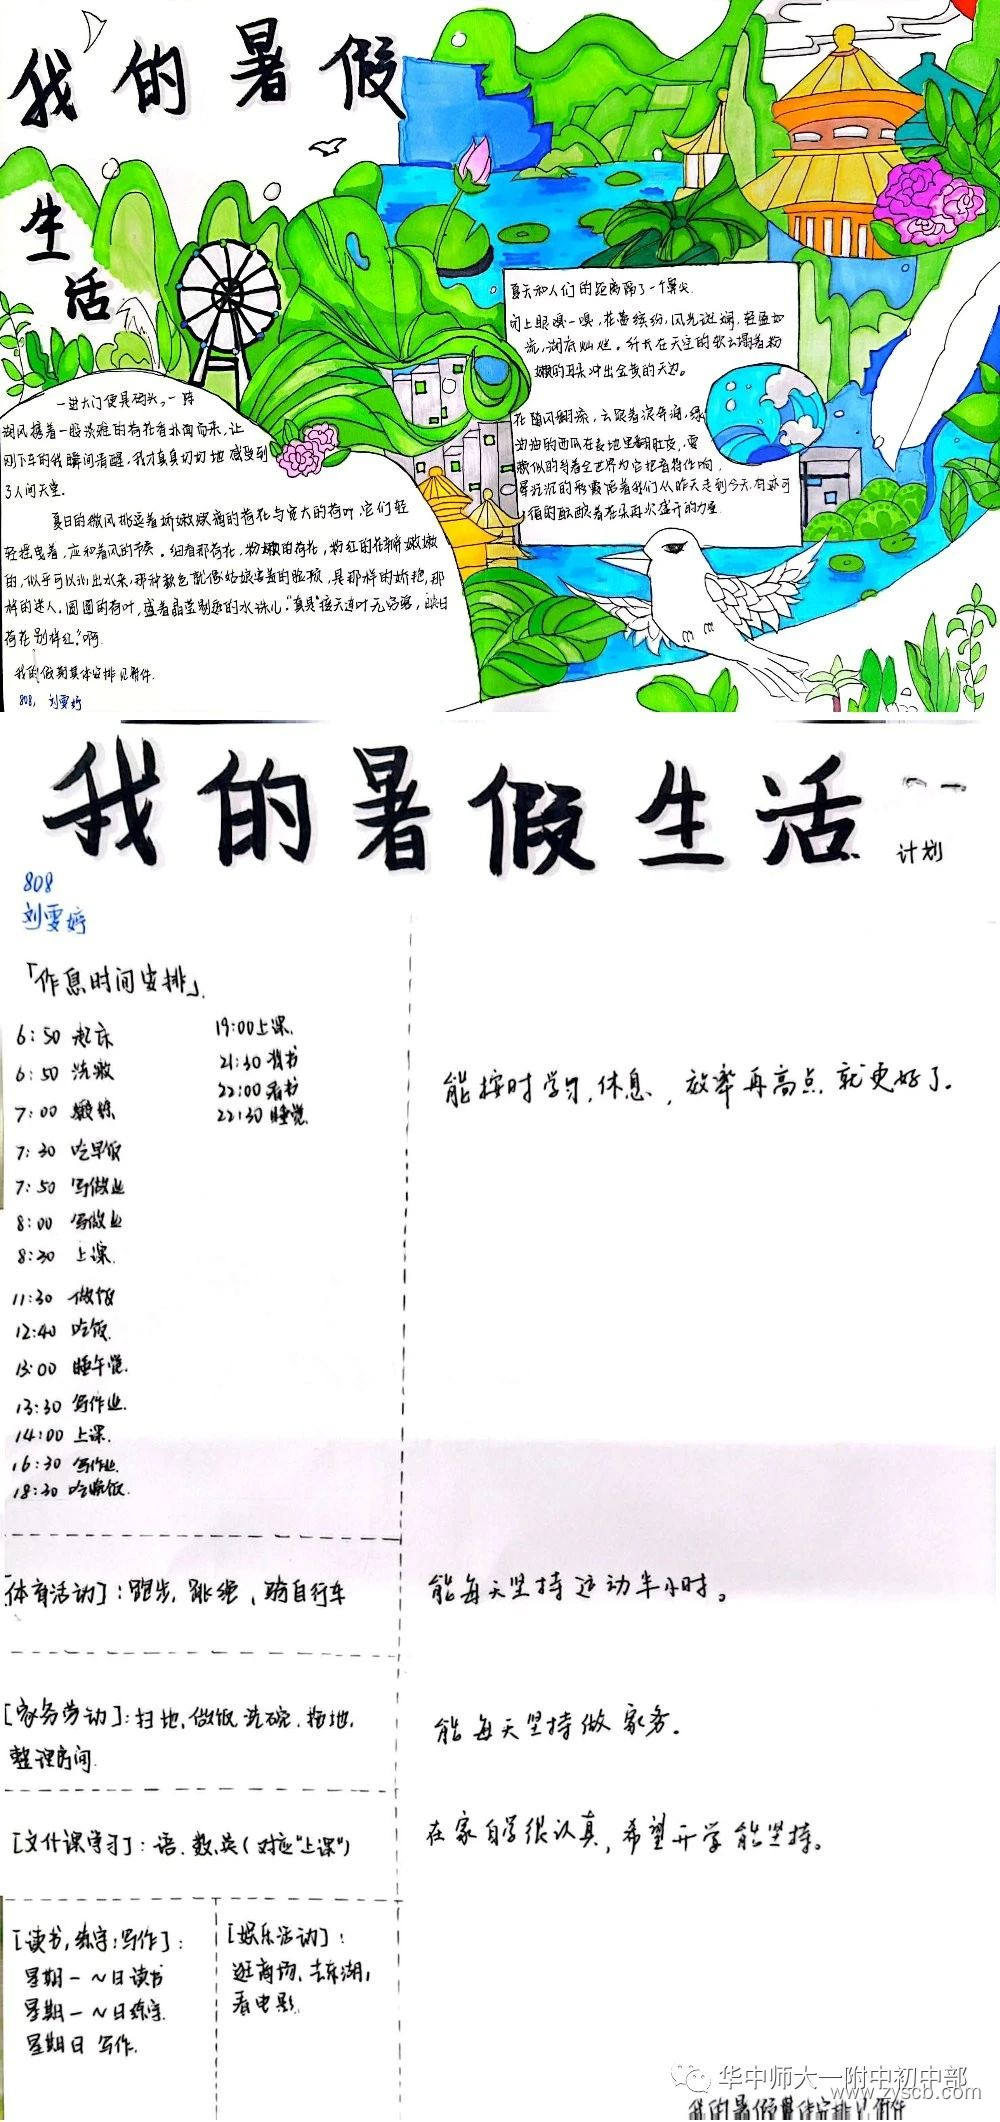 我的暑假
生
活
一进大门便是码头。一阵
湖风携着一股淡雅的荷花香扑面而来，让
刚下车的我瞬间清醒，我才真真切切地感受到
了人间天堂。
夏日的微风挑逗着娇嫩欲滴的荷花与宽大的荷叶，它们轻
轻摇曳着，应和着风的节奏。细看那荷花，粉嫩的荷花，粉红的花瓣嫩嫩
的，似乎可以沁出水来，那种颜色就像姑娘害羞的脸颊，是那样的娇艳，那
样的迷人，圆圆的荷叶，盛着晶莹剔透的水珠儿。"真是"接天莲叶无穷碧，映日
荷花别样红。"啊
我的假期具体安排见附件.
808，刘雯婷
夏天和人们的距离隔了一个鼻尖.
闭上眼嗅一嗅，花香缤纷，风光斑斓，轻盈如
流，湖府灿烂。
嫩的耳朵冲出金黄的天边。
花随风翻流，云跟着浪奔涌，绿
油油的西瓜在长地里翻肚皮，耍
赖似的等着全世界为它挠着痒作响，
晕沉沉的形霞陪着我们从昨天走到今天，
值的酝酿着花朵再次盛开的力量
我的暑假生活
计划
808
刘雯婷
「作息时间安排」.
6:50 起床
6:50 洗漱
7:00 锻炼
7:30 吃早饭
7:50 写做业
8:00 写做业
8:30 上课.
11:30 做饭
12:40 吃饭.
13:00 睡午觉.
13:30 写作业.
14:00 上课.
16:30 写作业.
18:30 吃晚饭.
19:00上课.
21:30 背书
22:00 看书
22:30 睡觉
能按时学习，休息，效率再高点就更好了。
[体育活动]：跑步，跳绳，骑自行车
能每天坚持运动半小时。
[家务劳动]：扫地，做饭，洗碗，拖地，
整理房间.
能每天坚持做家务。
[文化课学习]：语、数、英（对应"上课"）
在家自学很认真，希望开学能坚持。
[读书，练字，写作]：
星期一～日读书
星期一～日练字.
星期日 写作.
[娱乐活动]：
逛商场，去东湖，
看电影.
华中师大一附中初中部
www.zyscb.com
我的暑假具体安排见附件